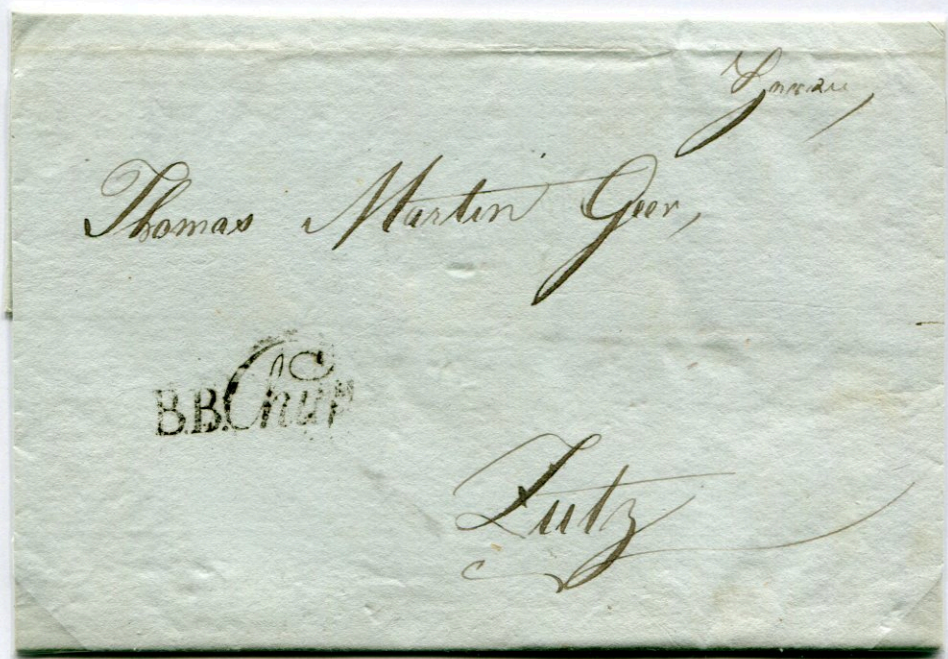 Thomas Martin Geer,
B.B. Chur
Zutz